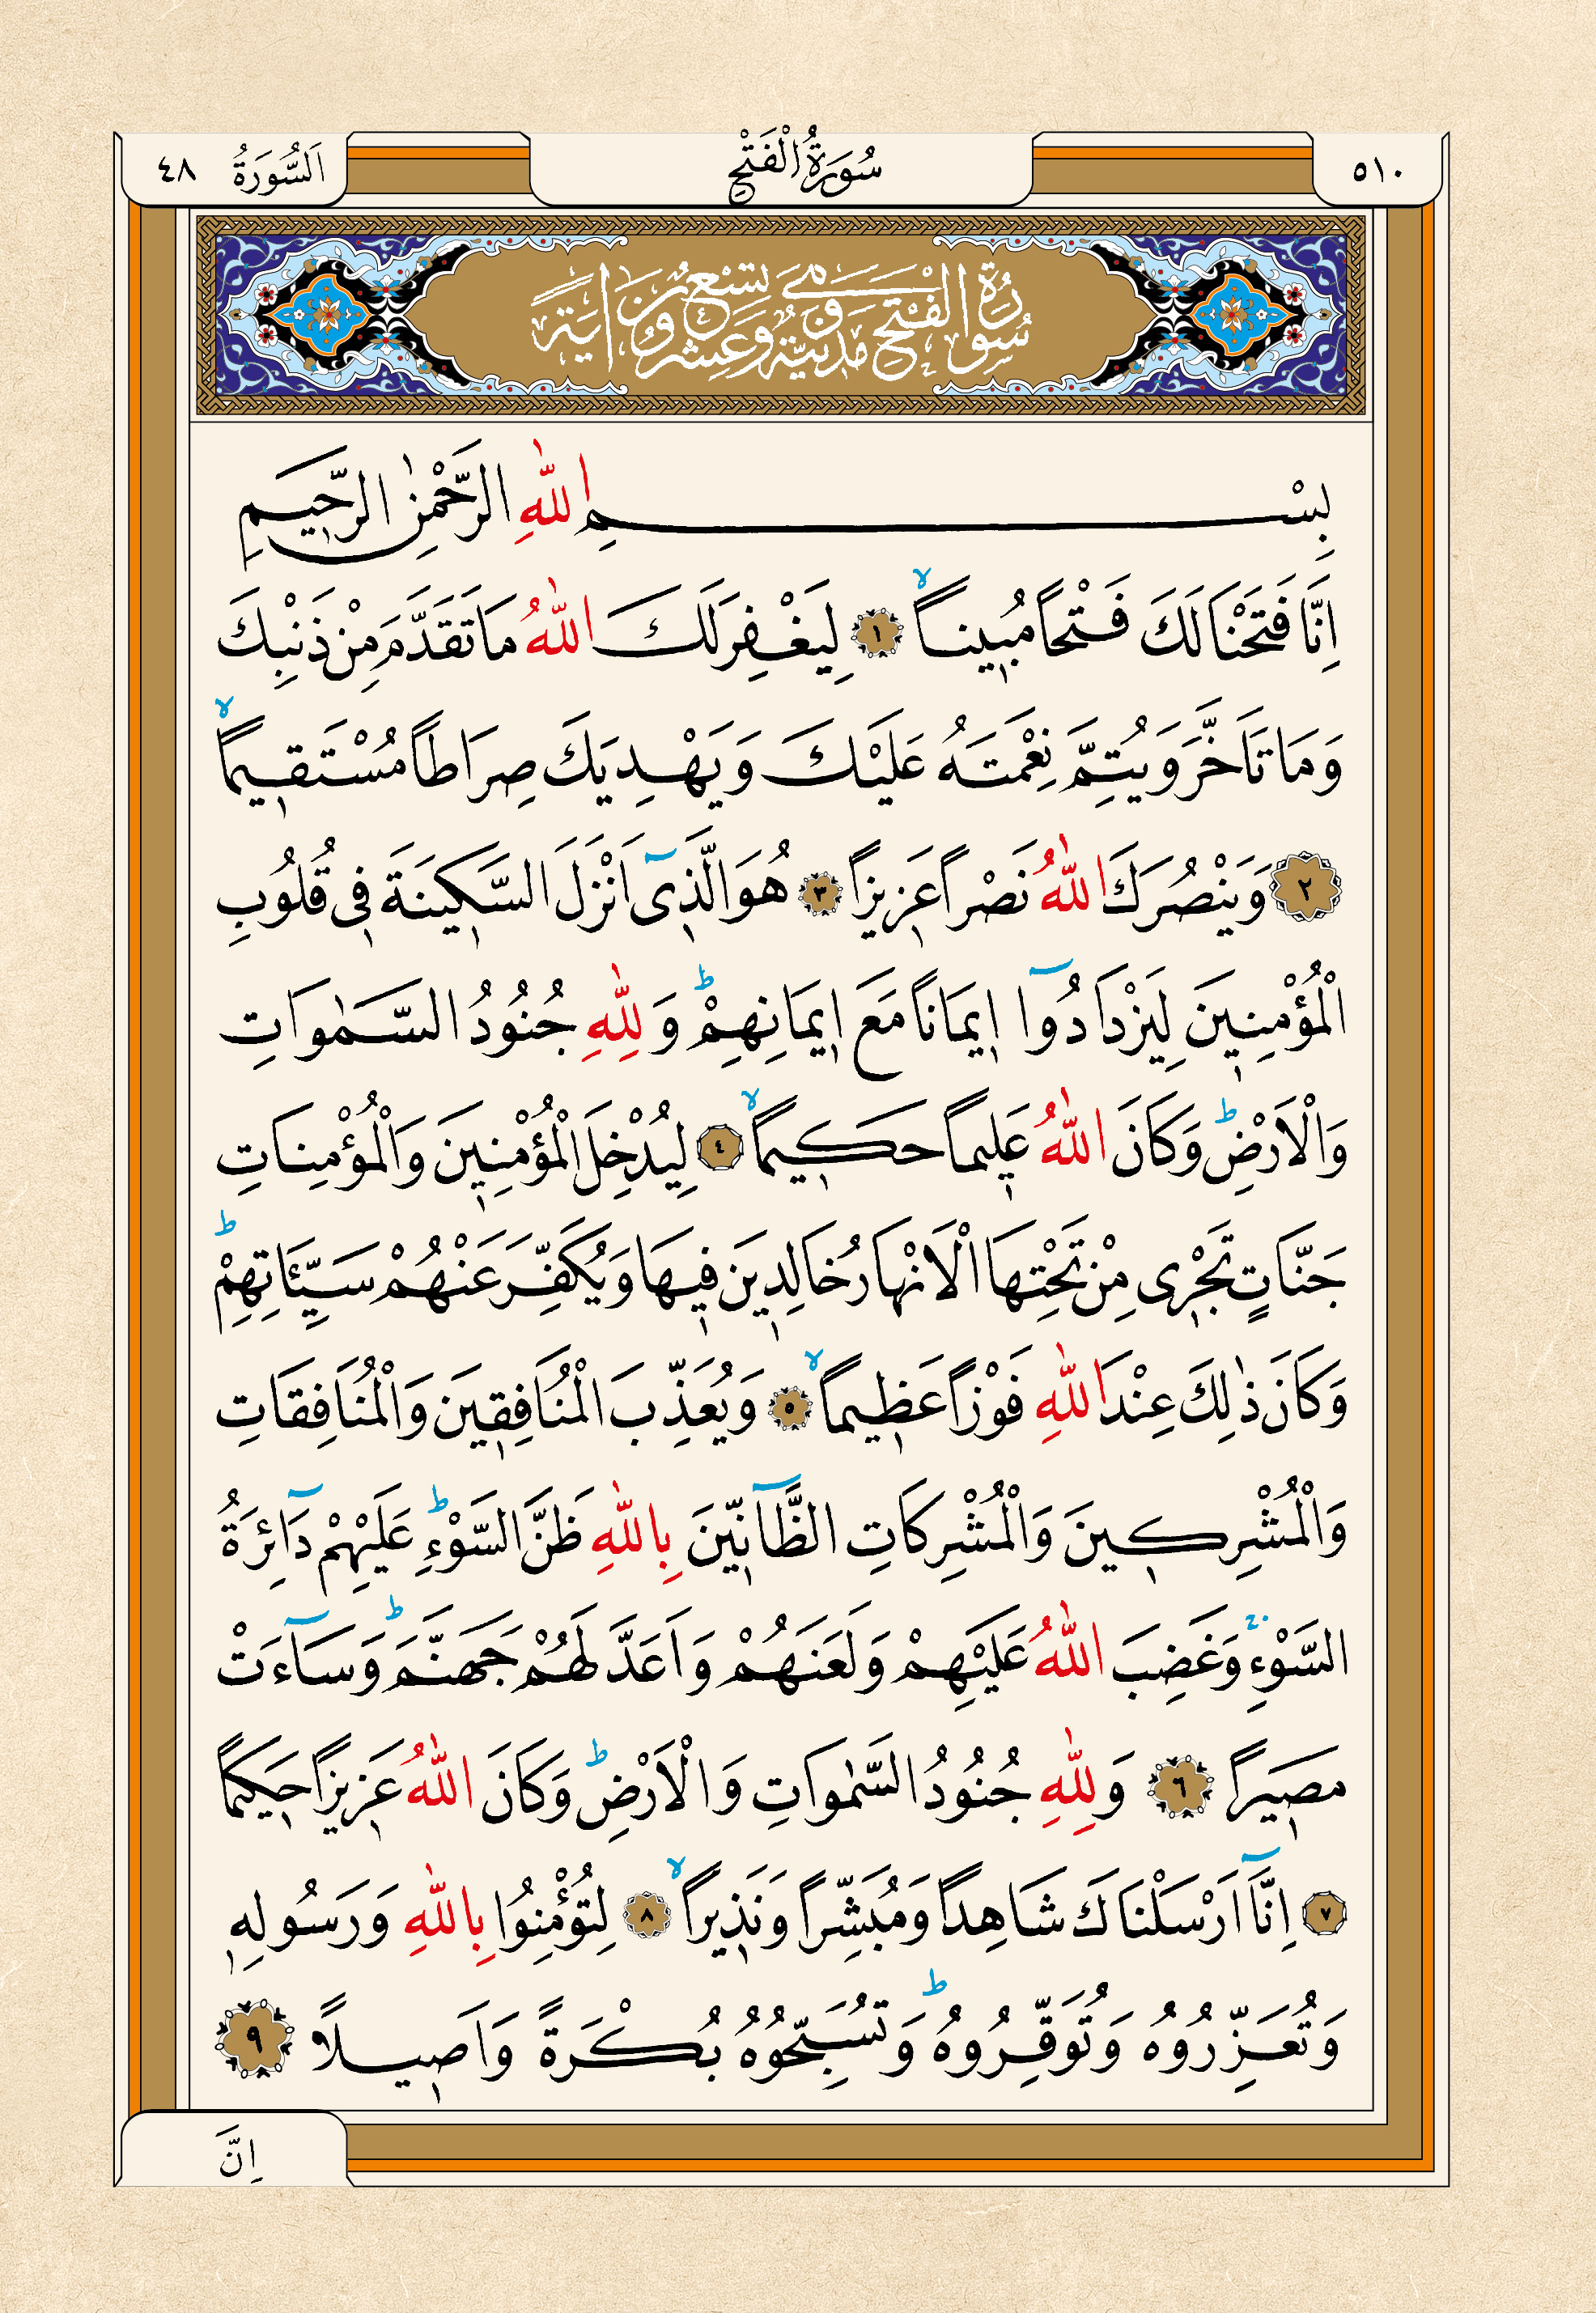 ٥١٠
سُورَةُ الْفَتْحِ
اَلسُّورَةُ ٤٨
سُورَةُ الْفَتْحِ مَدَنِيَّةٌ وَهِيَ تِسْعٌ وَعِشْرُونَ اٰيَةً
بِسْمِ اللّٰهِ الرَّحْمٰنِ الرَّح۪يمِ
اِنَّا فَتَحْنَا لَكَ فَتْحًا مُب۪ينًاۙ ﴿١﴾ لِيَغْفِرَ لَكَ اللّٰهُ مَا تَقَدَّمَ مِنْ ذَنْبِكَ
وَمَا تَاَخَّرَ وَيُتِمَّ نِعْمَتَهُ عَلَيْكَ وَيَهْدِيَكَ صِرَاطًا مُسْتَق۪يمًاۙ
﴿٢﴾ وَيَنْصُرَكَ اللّٰهُ نَصْرًا عَز۪يزًا ﴿٣﴾ هُوَ الَّذ۪ٓي اَنْزَلَ السَّك۪ينَةَ ف۪ي قُلُوبِ
الْمُؤْمِن۪ينَ لِيَزْدَادُٓوا ا۪يمَانًا مَعَ ا۪يمَانِهِمْۜ وَلِلّٰهِ جُنُودُ السَّمٰوَاتِ
وَالْاَرْضِۜ وَكَانَ اللّٰهُ عَل۪يمًا حَك۪يمًاۙ ﴿٤﴾ لِيُدْخِلَ الْمُؤْمِن۪ينَ وَالْمُؤْمِنَاتِ
جَنَّاتٍ تَجْر۪ي مِنْ تَحْتِهَا الْاَنْهَارُ خَالِد۪ينَ ف۪يهَا وَيُكَفِّرَ عَنْهُمْ سَيِّـَٔاتِهِمْۜ
وَكَانَ ذٰلِكَ عِنْدَ اللّٰهِ فَوْزًا عَظ۪يمًاۙ ﴿٥﴾ وَيُعَذِّبَ الْمُنَافِق۪ينَ وَالْمُنَافِقَاتِ
وَالْمُشْرِك۪ينَ وَالْمُشْرِكَاتِ الظَّٓانّ۪ينَ بِاللّٰهِ ظَنَّ السَّوْءِۜ عَلَيْهِمْ دَٓائِرَةُ
السَّوْءِۚ وَغَضِبَ اللّٰهُ عَلَيْهِمْ وَلَعَنَهُمْ وَاَعَدَّ لَهُمْ جَهَنَّمَۜ وَسَٓاءَتْ
مَص۪يرًا ﴿٦﴾ وَلِلّٰهِ جُنُودُ السَّمٰوَاتِ وَالْاَرْضِۜ وَكَانَ اللّٰهُ عَز۪يزًا حَك۪يمًا
﴿٧﴾ اِنَّٓا اَرْسَلْنَاكَ شَاهِدًا وَمُبَشِّرًا وَنَذ۪يرًاۙ ﴿٨﴾ لِتُؤْمِنُوا بِاللّٰهِ وَرَسُولِه۪
وَتُعَزِّرُوهُ وَتُوَقِّرُوهُۜ وَتُسَبِّحُوهُ بُكْرَةً وَاَص۪يلًا ﴿٩﴾
اِنَّ